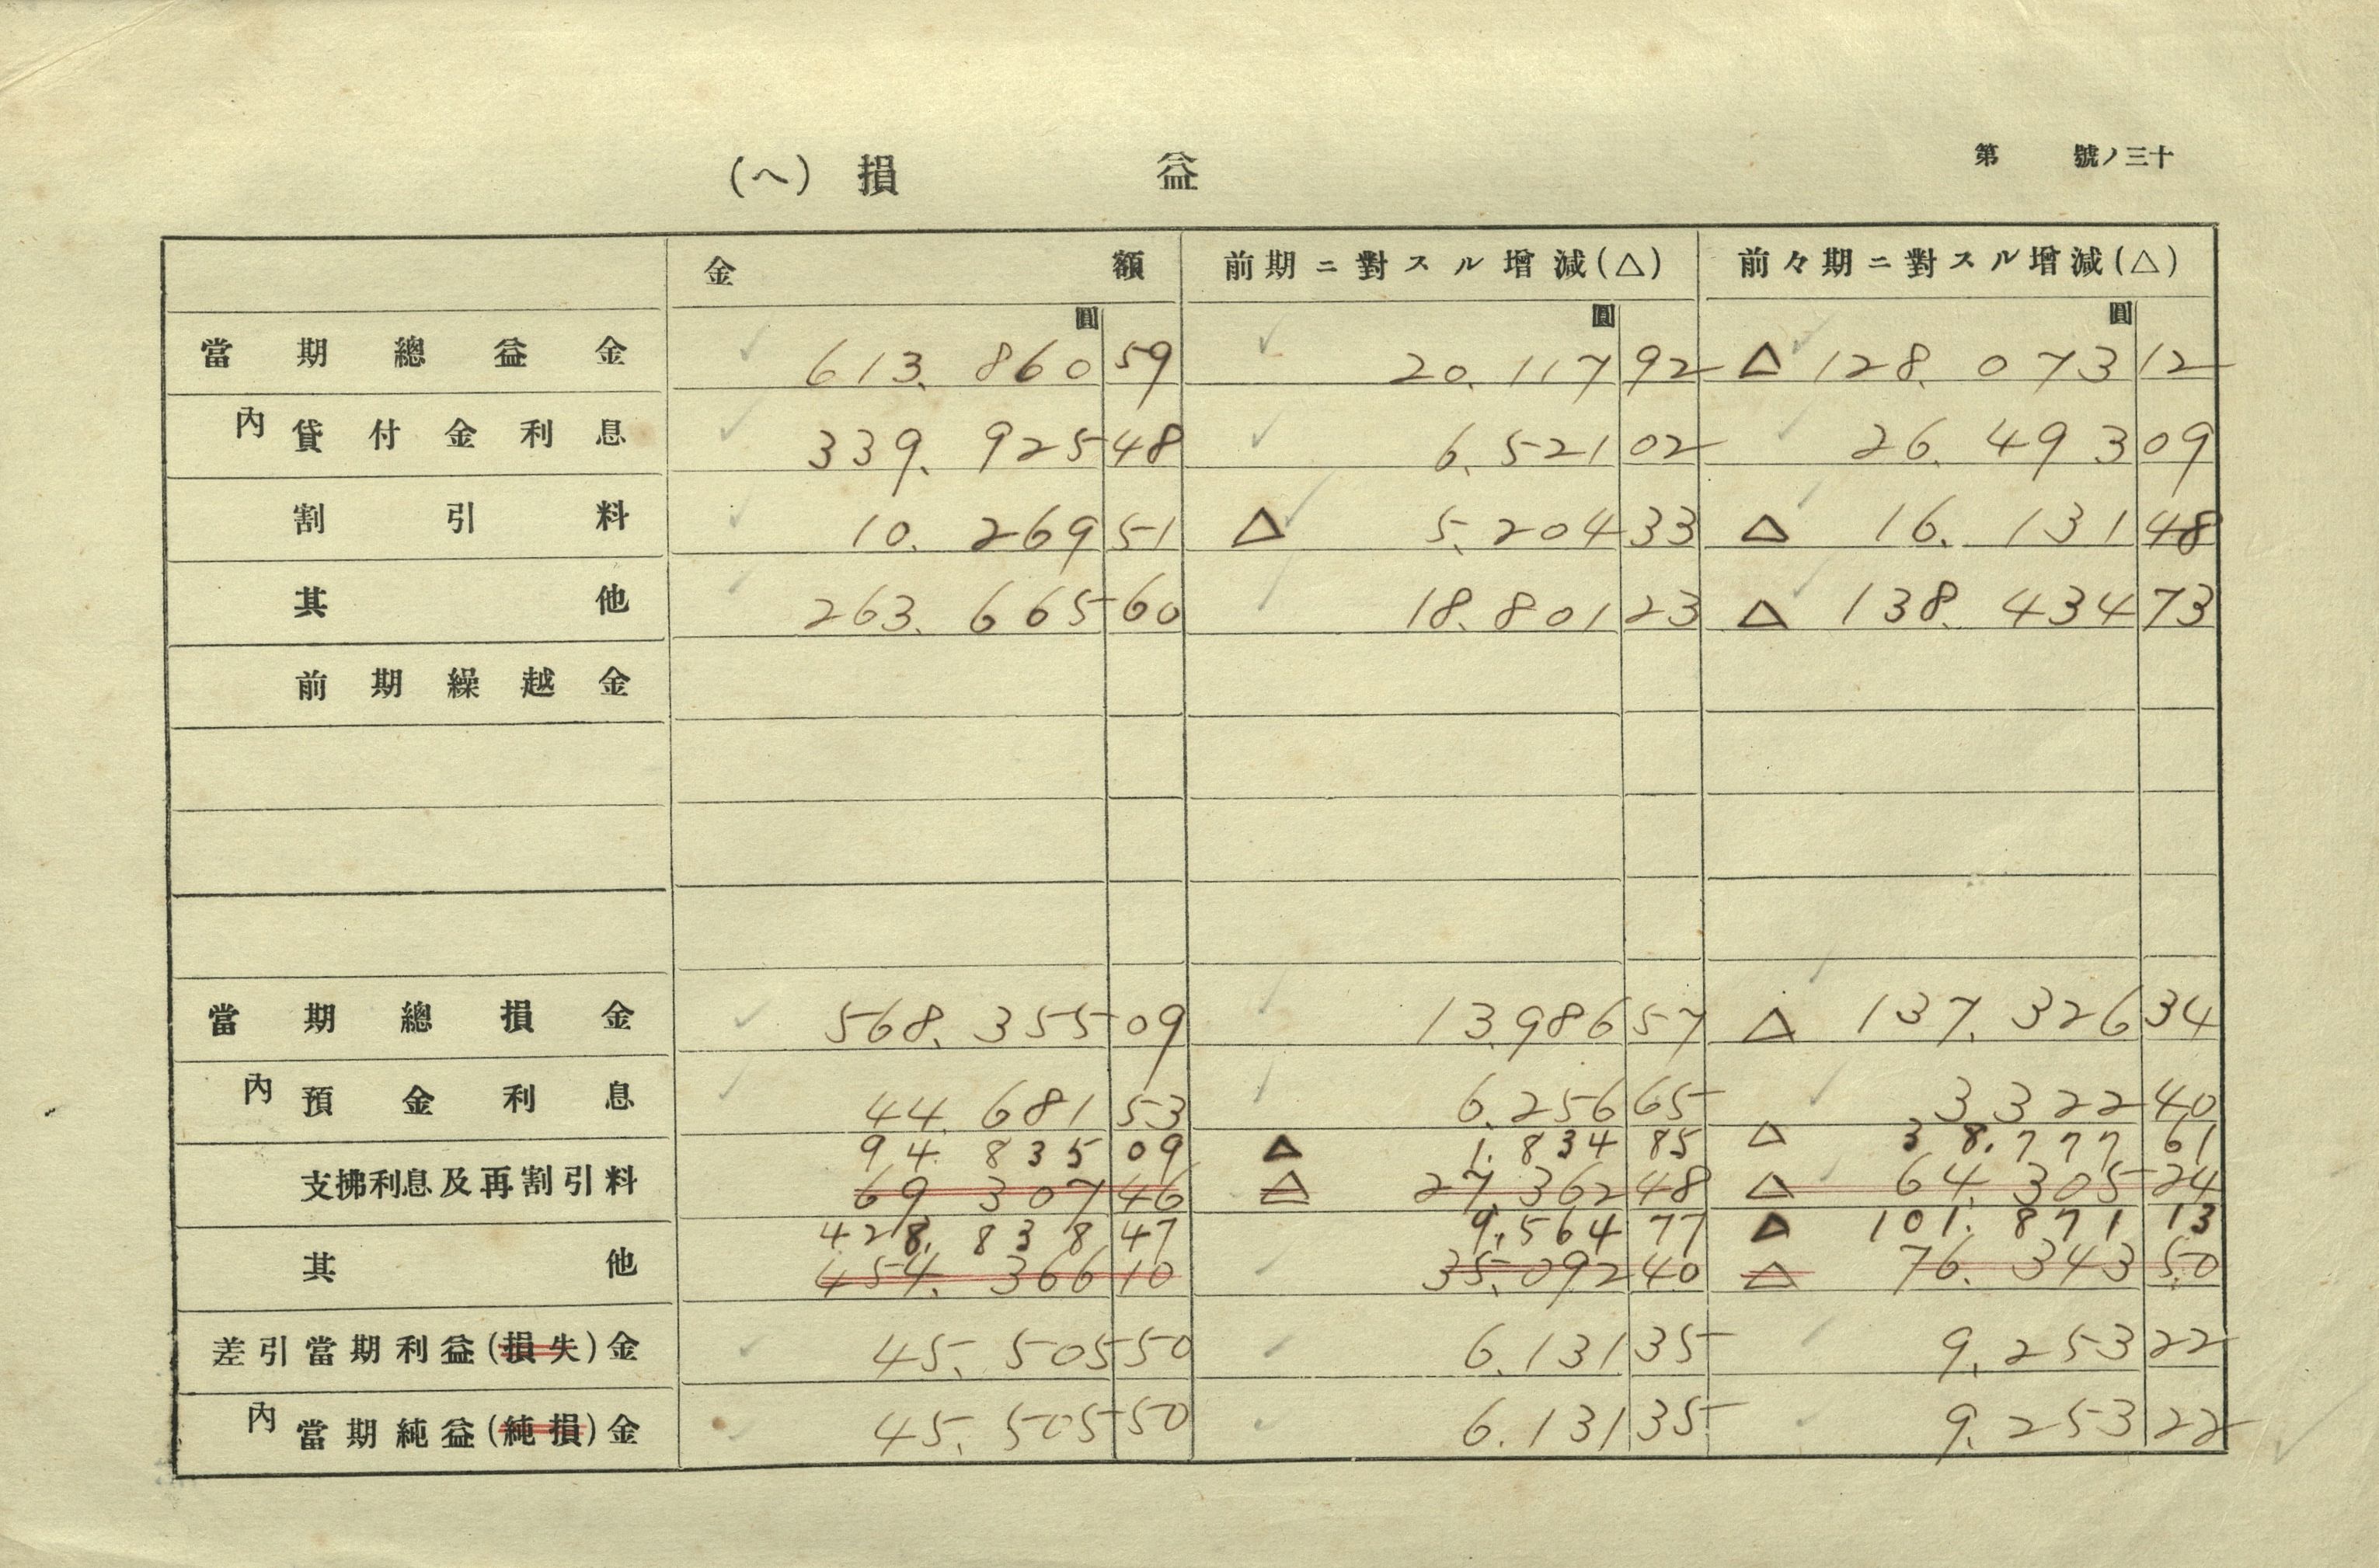 第 號ノ三十
(ヘ) 損 益
金 額 前期ニ對スル増減(△) 前々期ニ對スル増減(△)
圓 圓 圓
當期總益金 613.860 59 20.117 92 △128.073 12
內 貸付金利息 339.925 48 6.521 02 26.493 09
割引料 10.269 51 △ 5.204 33 △ 16.131 48
其他 263.665 60 18.801 23 △ 138.434 73
前期繰越金
當期總損金 568.355 09 13.986 57 △ 137.326 34
內 預金利息 44.681 53 6.256 65 3 322 40
94.835 09 △ 1.834 85 △ 38.777 61
支拂利息及再割引料 69 307 46 △ 27.362 48 △ 64.305 24
428.838 47 9.564 77 △ 101.871 13
其他 454.366 10 35.092 40 △ 76.343 50
差引當期利益(損失)金 45.505 50 6.131 35 9.253 22
內 當期純益(純損)金 45.505 50 6.131 35 9.253 22